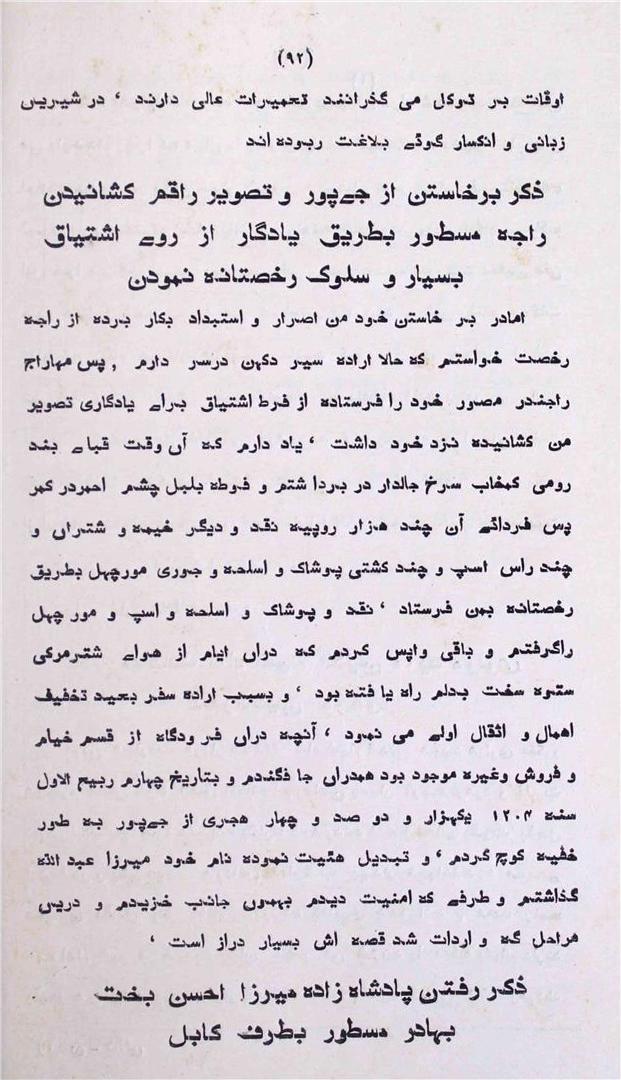 (۹۲)
اوقات بر توکل می گذرانند تعمیرات عالی دارند ، در شیریں
زبانی و انکسار گوئے بلاغت ربوده اند
ذکر برخاستن از جےپور و تصویر راقم کشانیدن
راجه مسطور بطریق یادگار از روے اشتیاق
بسیار و سلوک رخصتانه نمودن
امادر بر خاستن خود من اصرار و استبداد بکار برده از راجه
رخصت خواستم که حالا اراده سیر دکهن درسر دارم , پس مهاراج
راجندر مصور خود را فرستاده از فرط اشتیاق براے یادگاری تصویر
من کشانیده نزد خود داشت ، یاد دارم که آں وقت قباے بند
رومی کمخاب سرخ جالدار در بردا شتم و فوطه بلبل چشم احمردر کمر
پس فردائے آن چند هزار روپیه نقد و دیگر خیمه و شتراں و
چند راس اسپ و چند کشتی پوشاک و اسلحه و جوری مورچهل بطریق
رخصتانه بمن فرستاد ، نقد و پوشاک و اسلحه و اسپ و مور چهل
راگرفتم و باقی واپس کردم که دراں ایام از هواے شترمرکی
ستوه سخت بدلم راه یا فته بود ، و بسبب اراده سفر بعید تخفیف
اهمال و اثقال اولے می نمود ، آنچه دراں فرودگاه از قسم خیام
و فروش وغیره موجود بود همدراں جا فگندم و بتاریخ چهارم ربیع الاول
سنه ۱۲۰۴ یکهزار و دو صد و چهار هجری از جےپور به طور
خفیه کوچ کردم ، و تبدیل هئیت نموده نام خود میرزا عبد الله
گذاشتم و طرفے که امنیت دیدم بهموں جانب خزیدم و دریں
مراحل که و اردات شد قصه اش بسیار دراز است ،
ذکر رفتن پادشاه زاده میرزا احسن بخت
بهادر مسطور بطرف کابل